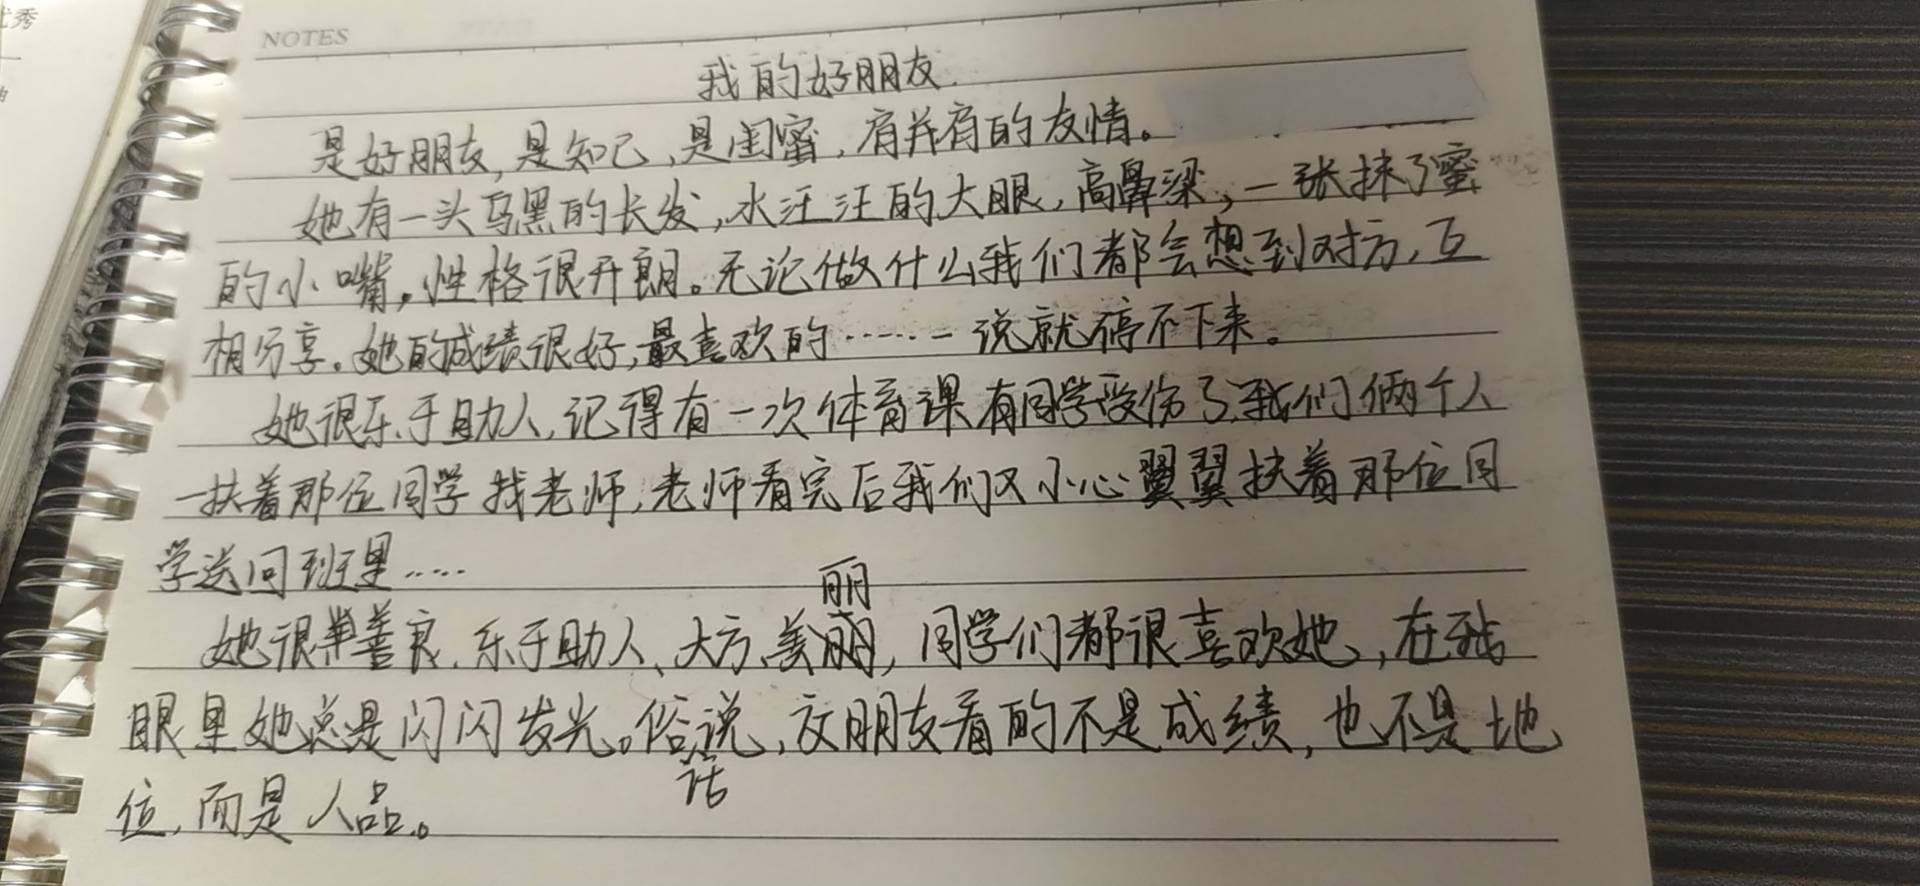 优秀
NOTES
我的好朋友.
是好朋友,是知己,是闺蜜,有并有的友情。
她有一头乌黑的长发,水汪汪的大眼,高鼻梁,一张抹了蜜
的小嘴,性格很开朗。无论做什么我们都会想到对方,互
相分享。她的成绩很好,最喜欢的……一说就停不下来。
她很乐于助人,记得有一次体育课有同学受伤了,我们俩个人
一扶着那位同学找老师,老师看完后我们又小心翼翼扶着那位同
学送回班里……
她很善良.乐于助人、大方、美丽,同学们都很喜欢她,在我
眼里她总是闪闪发光。俗话说,交朋友看的不是成绩,也不是地
位,而是人品。